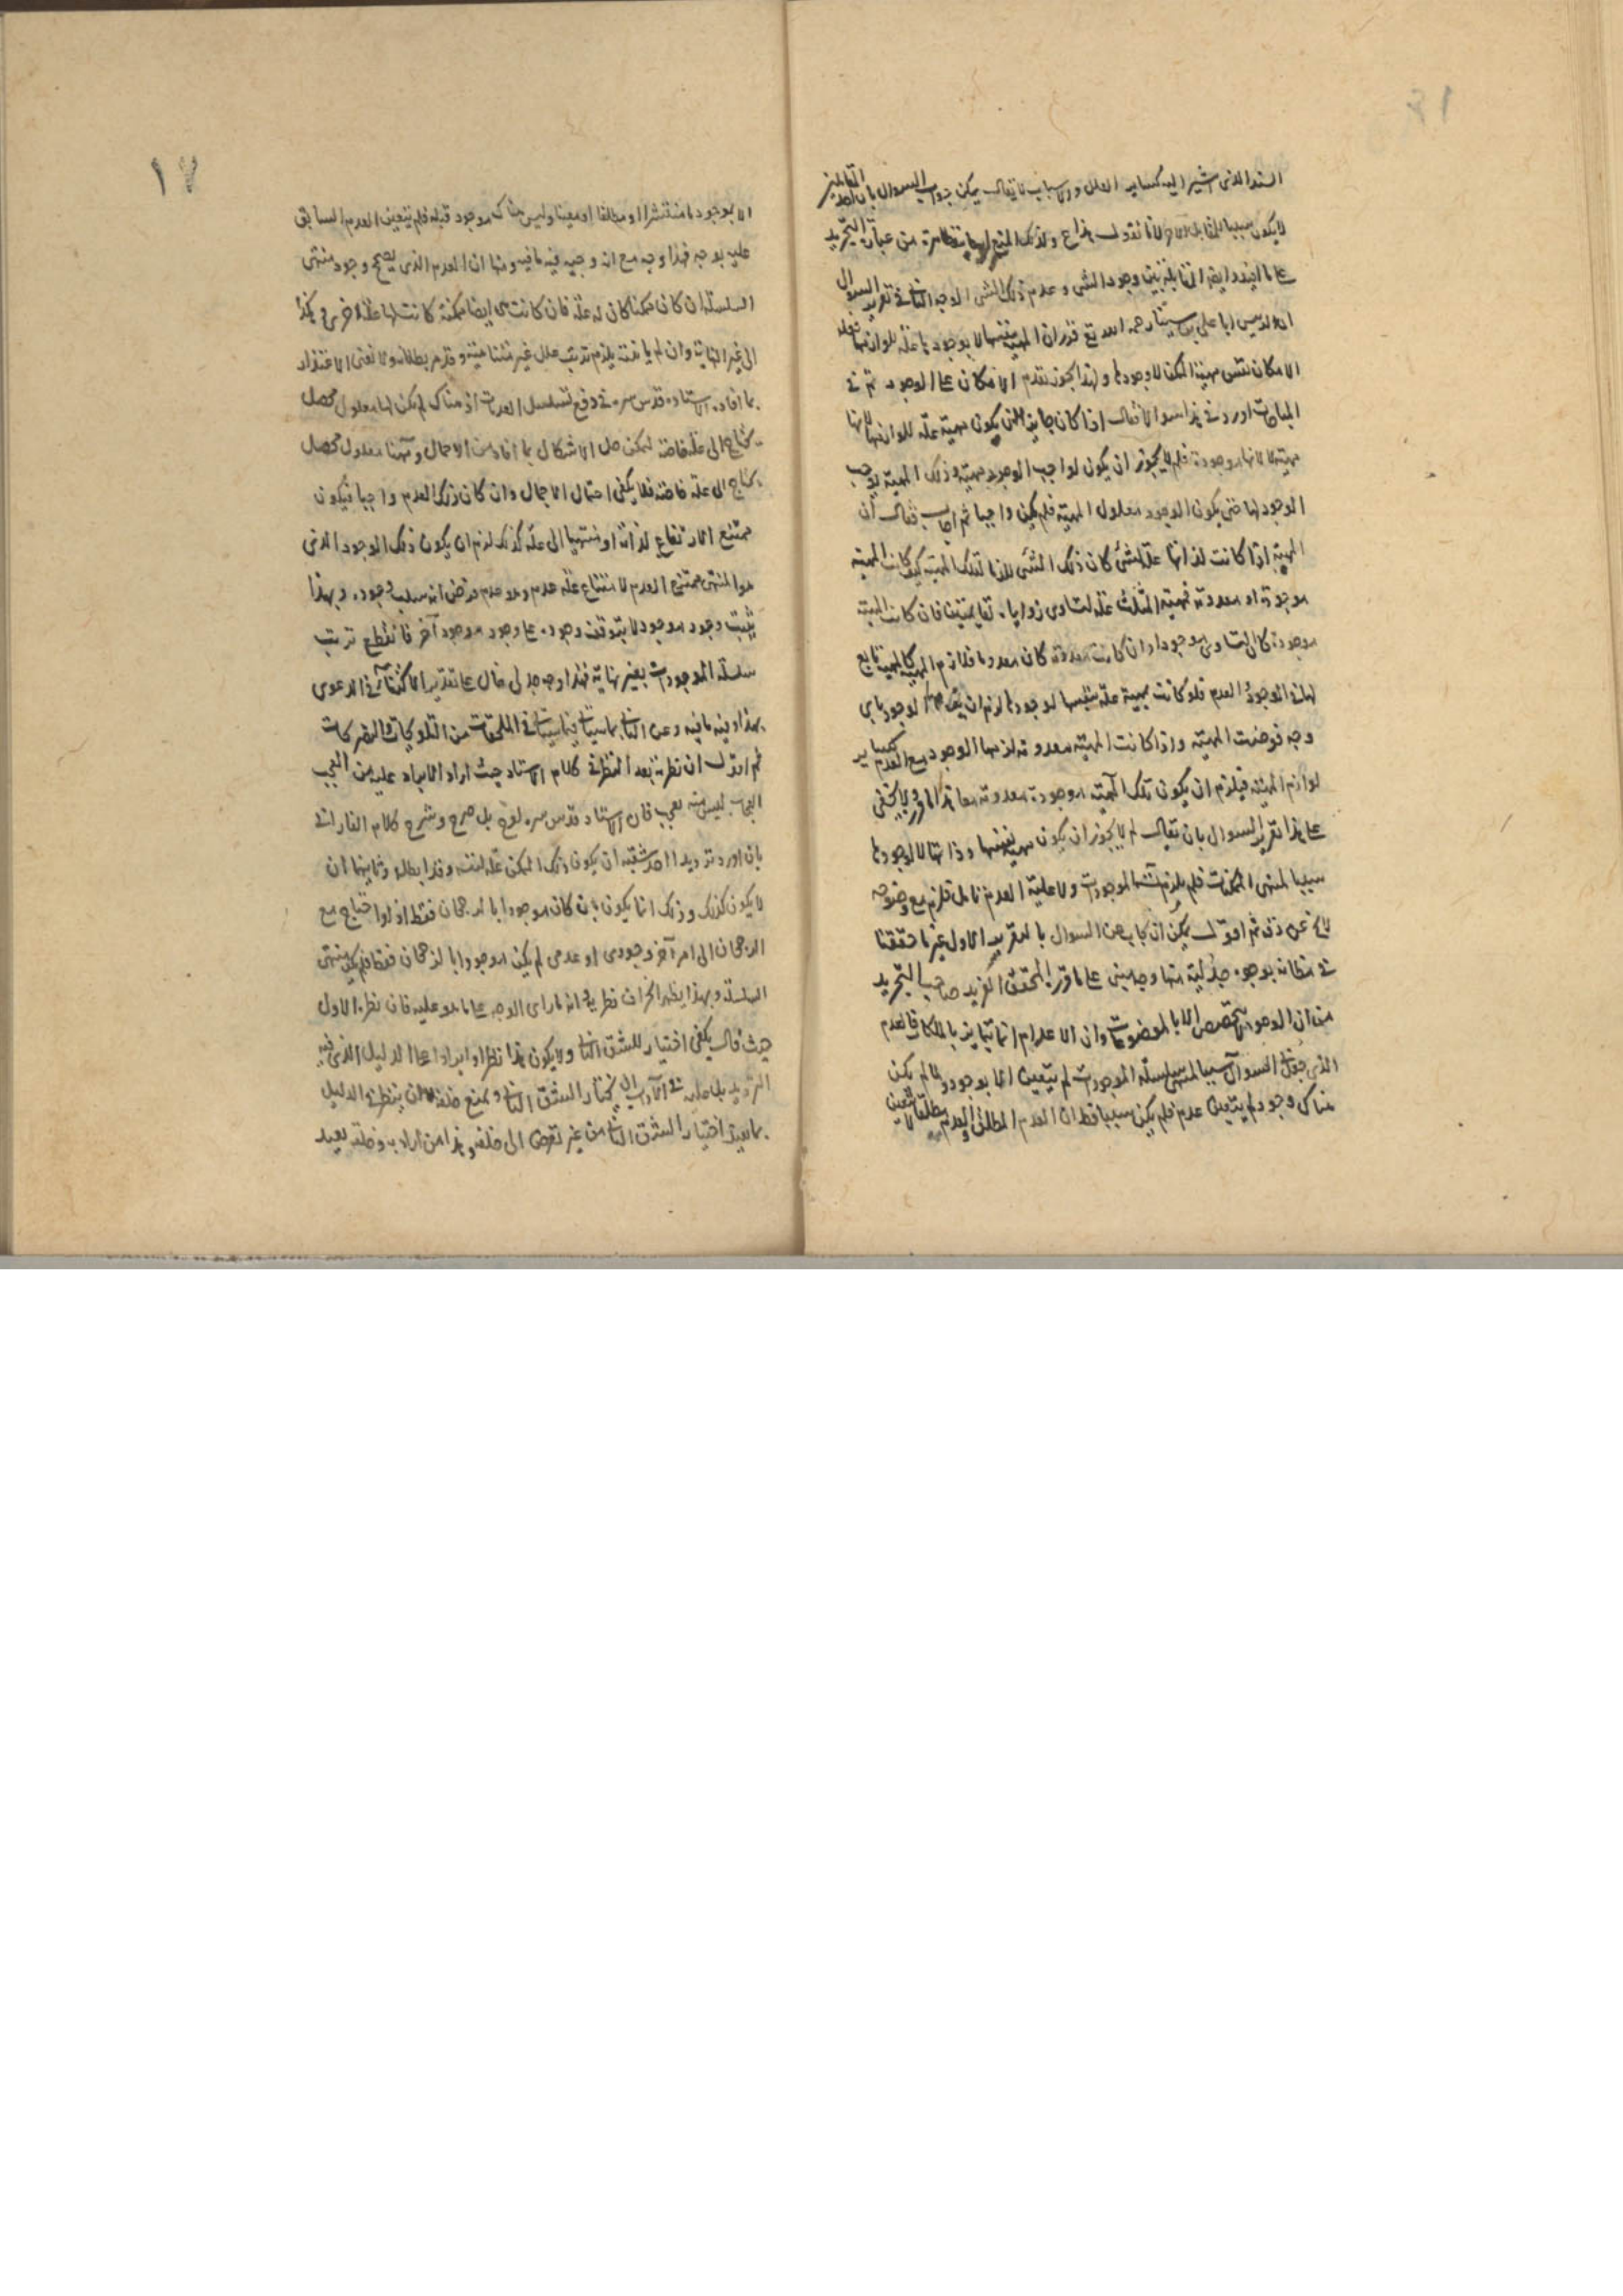 السند الذى اشير اليه كساير العلل والاسباب لا يقال يمكن جواب السوال بان احد المتقابلين
لا يكون سببا للمقابل الاخر لانا نقول هذا ولذلك المنع من عبارة التجريد
على ما افيد وايضا التقابل بين وجود الشى وعدم ذلك الشى الوجه الثانى فى تقرير السوال
ان الرييس ابا على بن سينا رحمه الله تع قرر ان المهية بنفسها لا بوجودها علة للوازمها فعلة
الامكان نفس مهية الممكن لا وجودها ولهذا يجوز تقدم الامكان على الوجود ثم فى
المباحثات اورد فى هذا سوالا فقال اذا كان جايزا ان يكون مهية علة للوازمها لانها
مهية لا لانها موجودة فلم لا يجوز ان يكون لواجب الوجود مهية وذلك المهية يوجب
الوجود لها حتى يكون الوجود معلول المهية فلم يكن واجبا ثم اجاب فقال ان
المهية اذا كانت لذاتها علة لشئ كان ذلك الشئ لازما لتلك المهية كيف كانت المهية
موجودة او معدومة فمهية المثلث علة لتساوى زواياه لقايمتين فان كانت المهية
موجودة كان التساوى موجودا وان كانت معدومة كان معدوما فلازم المهية كالمهية تابع
لها فى الوجود والعدم فلو كانت مهية علة بنفسها لوجودها لزم ان الوجود باى
وجه فرضت المهية واذا كانت المهية معدومة لزمها الوجود مع العدم كساير
لوازم المهية فيلزم ان يكون تلك المهية موجودة معدومة معا ولا يخفى
على هذا تقرير السوال بان يقال لم لا يجوز ان يكون مهية بنفسها وذاتها لا لوجودها
سببا لمنتهى الممكنات فلم يلزم الموجودات ولا علية العدم تامل فلزم مع وضوحه
لا يخ عن دقة ثم اقول يمكن ان يجاب عن السوال بالتقرير الاول غير ما حققنا
فى مظانه بوجوه جدلية منها وجه مبنى على ما قرره المحقق الفريد صاحب التجريد
من ان الوجود الا بالموضوعات وان الاعدام انما تتمايز بالملكات فالعدم
الذى جعل فى السوال سببا لمنتهى سلسلة الموجودات لم يتعين الا بوجود ولما لم يكن
هناك وجود لم يتعين عدم فلم يكن سببا قط ان العدم المطلق
الا بوجود ما منتشرا او مطلقا او معينا وليس هناك موجود قبله فلم يتعين العدم السابق
عليه بوجه فهذا وجه مع انه وجيه فيه ما فيه ومنها ان العدم الذى يصح وجود منتهى
السلسلة ان كان ممكنا كان له علة فان كانت هى ايضا ممكنة كانت لها علة اخرى وهكذا
الى غير النهاية وان لم يلزم ترتب علل غير متناهية وقد مر بطلانه ولا يغنى الاعتذار
بما افاده الاستاد قدس سره فى دفع تسلسل العدمات اذ هناك لم يكن لها معلول محصل
يحتاج الى علة خاصة ليمكن حل الاشكال بما افاد من الاجمال وههنا معلول محصل
يحتاج الى علة خاصة فلا يكفى احتمال الاجمال وان كان ذلك العدم واجبا فيكون
ممتنع الارتفاع لذاته او منتهيا الى علة كذلك لزم ان يكون ذلك الوجود الذى
هو المنتهى ممتنع العدم لامتناع علة عدمه وهو عدم فرض انه سبب وجوده وبهذا
يثبت وجود موجود لا يتوقف وجوده على وجود موجود آخر فانقطع ترتب
سلسلة الموجودات بغير نهاية فهذا وجه جدلى على تقدير الاكتفاء فى الدعوى
بهذا وفيه ما فيه وعن الثانى بما سياتى فى الملحقات من التلويحات والمشركات
ثم اقول ان نظرنا بعد النظر فى كلام الاستاد حيث اراد الايراد عليه من العجب
العجاب ليس منه بعجب فان الاستاد قدس سره لوح بل صرح وشرح كلام الفارابى
بان اورد ترديدا احد شقيه ان يكون ذلك الممكن علة لنفسه وقد ابطله وثانيهما ان
لا يكون كذلك وذلك انما يكون بان كان موجودا بالرجحان فقط اذ لو احتاج مع
الرجحان الى امر آخر وجودى او عدمى لم يكن موجودا بالرجحان فقط فلم يكن منتهى
السلسلة وبهذا يظهر انحراف نظريه انه ما راى الوجه على ما هو عليه فان نظره الاول
حيث قال يكفى اختيار للشق الثانى ولا يكون هذا نظرا وايرادا على الدليل الذى فيه
الترديد بل عليه فى الآداب ان يختار الشق الثانى ويمنع خلفه لا ان ينظر فى الدليل
بما يفيد اختيار الشق الثانى من غير تعرض الى خلفه وهذا من آداب وخلقه بعيد